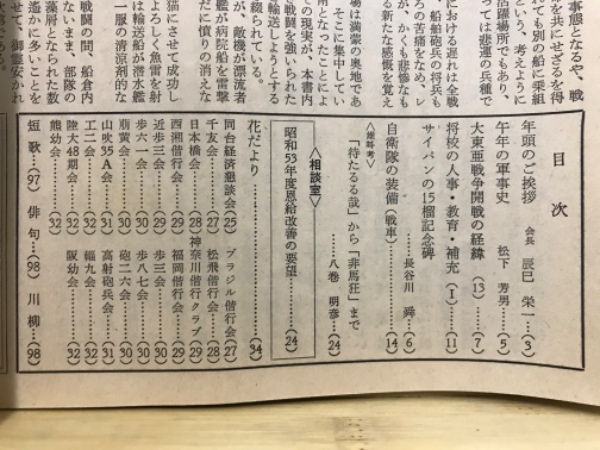 事態となるや、戦
を共にせざるを得
れても別の船に乗組
という、考えように
活躍場所でもあり、
っては悲運の兵種で
における遅れは全戦
、船舶砲兵の将兵も
ろの苦痛をなめ、レ
が、かくも悲惨なも
る新たな感慨を覚え
場は満蒙の奥地であ
そこに集中してい
南となったことによ
の現実が、本書内
な戦闘を強いられた
を輸送しようとする
綴られている。
が、敵機が漂流者
艦が病院船を雷撃
だに憤りの消えな
猫にさせて成功し
よろしく魚雷を射
は輸送船が潜水艦
一服の清涼剤的な
戦闘の間、船倉内
ないまま、部隊の
藻屑となられた数
遙かに多いことを
せて、御霊安かれ
次第である。
目次
年頭のご挨拶 会長 辰巳 栄一…(3)
午年の軍事史 松下 芳男…(5)
大東亜戦争開戦の経緯 (13)……(7)
将校の人事・教育・補充 (I)……(11)
サイパンの15榴記念碑
……長谷川 舜…(6)
自衛隊の装備(戦車)……(14)
「待たるる哉」から「非馬狂」まで
……八巻 明彦…(24)
〈相談室〉
昭和53年度恩給改善の要望……(24)
花だより……(34)
同台経済懇談会(25) ブラジル偕行会(27)
千友会……(27) 松飛偕行会…(28)
日本橋会……(28) 神奈川偕行クラブ(29)
西湘偕行会…(29) 福岡偕行会…(29)
近歩三会……(29) 歩三会……(30)
歩六一会……(30) 歩八七会……(30)
萠黄会……(30) 砲二六会……(30)
山吹35A会……(31) 高射砲兵会…(31)
工二会……(31) 輜九会……(32)
陸大48期会…(32) 阪幼会……(32)
熊幼会……(32)
短歌…(97) 俳句…(98) 川柳…(98)